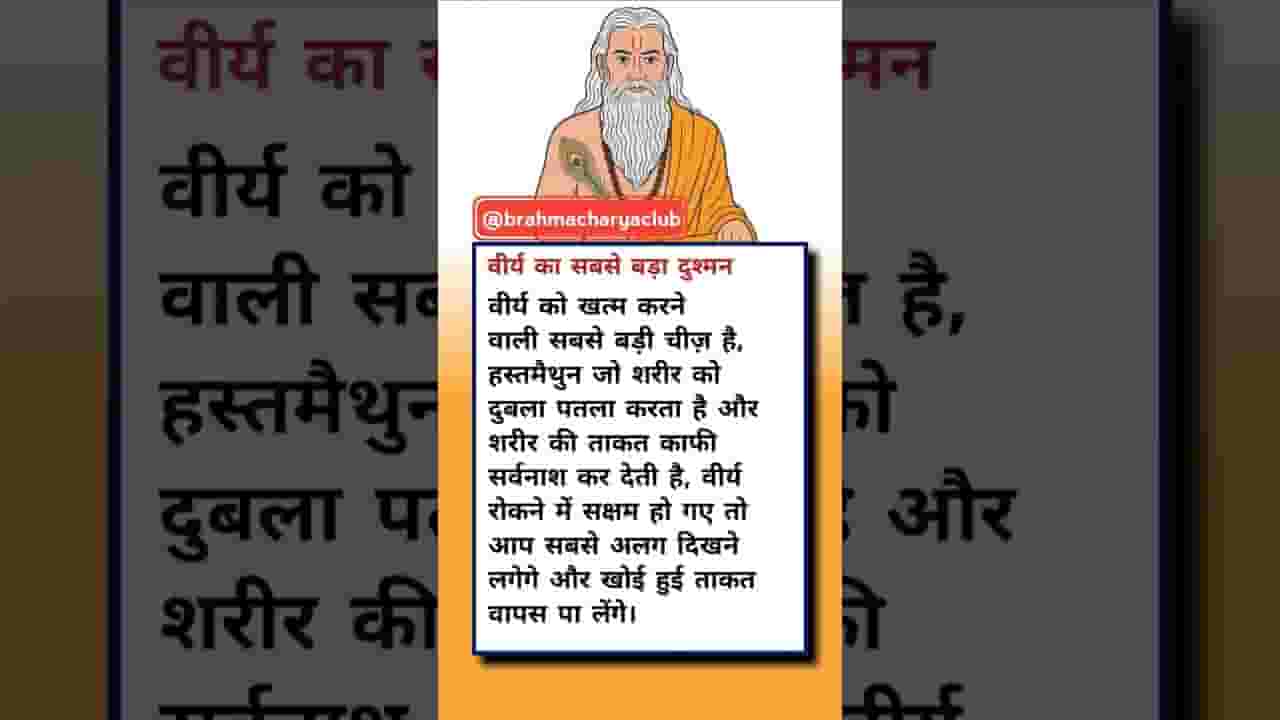 @brahmacharyaclub
वीर्य का सबसे बड़ा दुश्मन
वीर्य को खत्म करने
वाली सबसे बड़ी चीज़ है,
हस्तमैथुन जो शरीर को
दुबला पतला करता है और
शरीर की ताकत काफी
सर्वनाश कर देती है, वीर्य
रोकने में सक्षम हो गए तो
आप सबसे अलग दिखने
लगेगे और खोई हुई ताकत
वापस पा लेंगे।